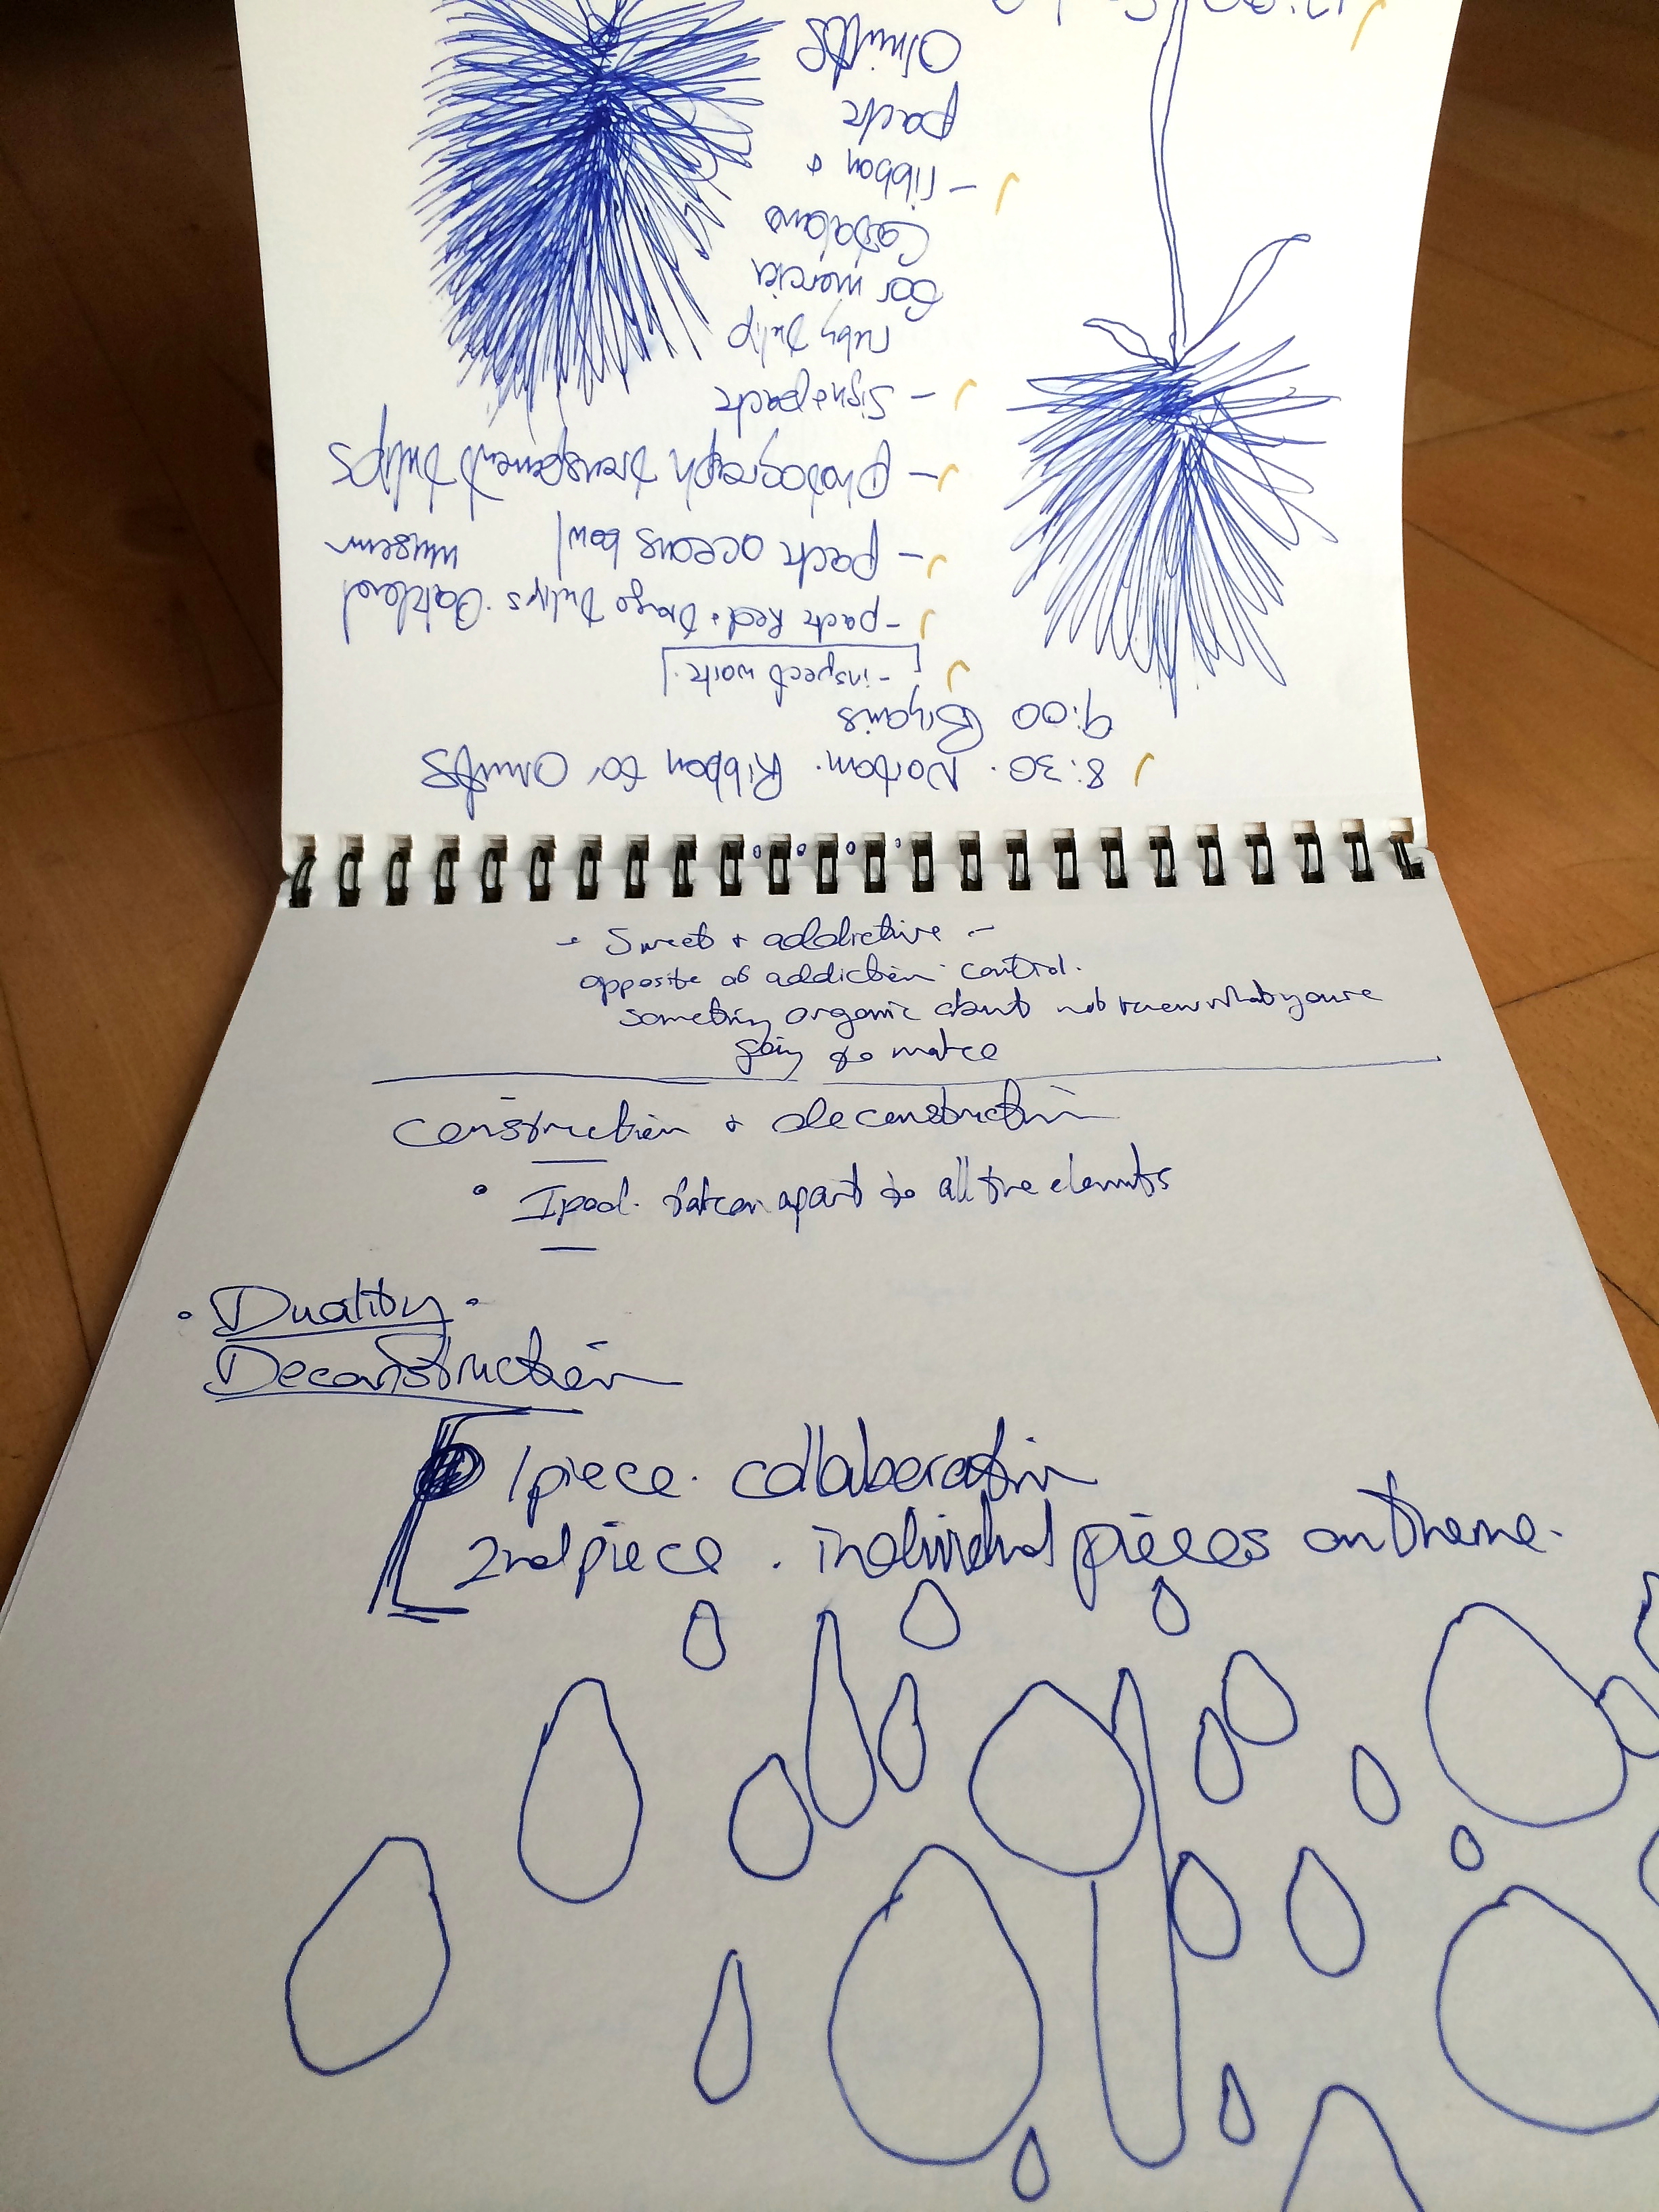 8:30. Ribbon for
9:00
- inspect work.
- pack Red + Tulips. Oakland
museum
- pack oceans bowl
- photograph transparent tulips
- sign + pack
ruby tulip
for marcia
- ribbon +
pack
- Sweet + addictive -
opposite of addiction control.
something organic about not know what youre
going to make
construction + deconstruction
• Ipod. taken apart to all the elements
• Duality •
Deconstruction
1 piece. collaboration
2nd piece. individual pieces on theme.